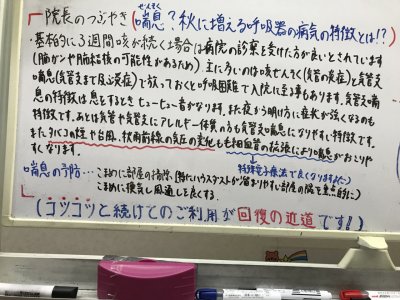 院長のつぶやき(喘息?秋に増える呼吸器の病気の特徴とは!?)
ぜんそく
・基本的に3週間咳が続く場合は病院の診察を受けた方が良いとされています
(肺ガンや肺結核の可能性があるため)主に多いのは咳ぜんそく(気管の炎症)と気管支
喘息(気管支まで及ぶ炎症)で放っておくと呼吸困難で入院に至る事もあります。気管支喘
息の特徴は息をするときヒューヒュー音がなります。また夜から明け方に症状が強くなるのも
特徴です。あとは気管や気管支にアレルギー体質の方も気管支喘息になりやすい特徴です。
またタバコの煙や台風、秋雨前線の気圧の変化も毛細血管の拡張により喘息がおこりや
すくなります。
→特殊電子療法で良くなりますよ♪
喘息の予防…こまめに部屋の掃除(特にハウスダストが溜まりやすい部屋の隅を重点的に)
こまめに換気し風通しを良くする。
(コツコツと続けてのご利用が回復の近道です!!)